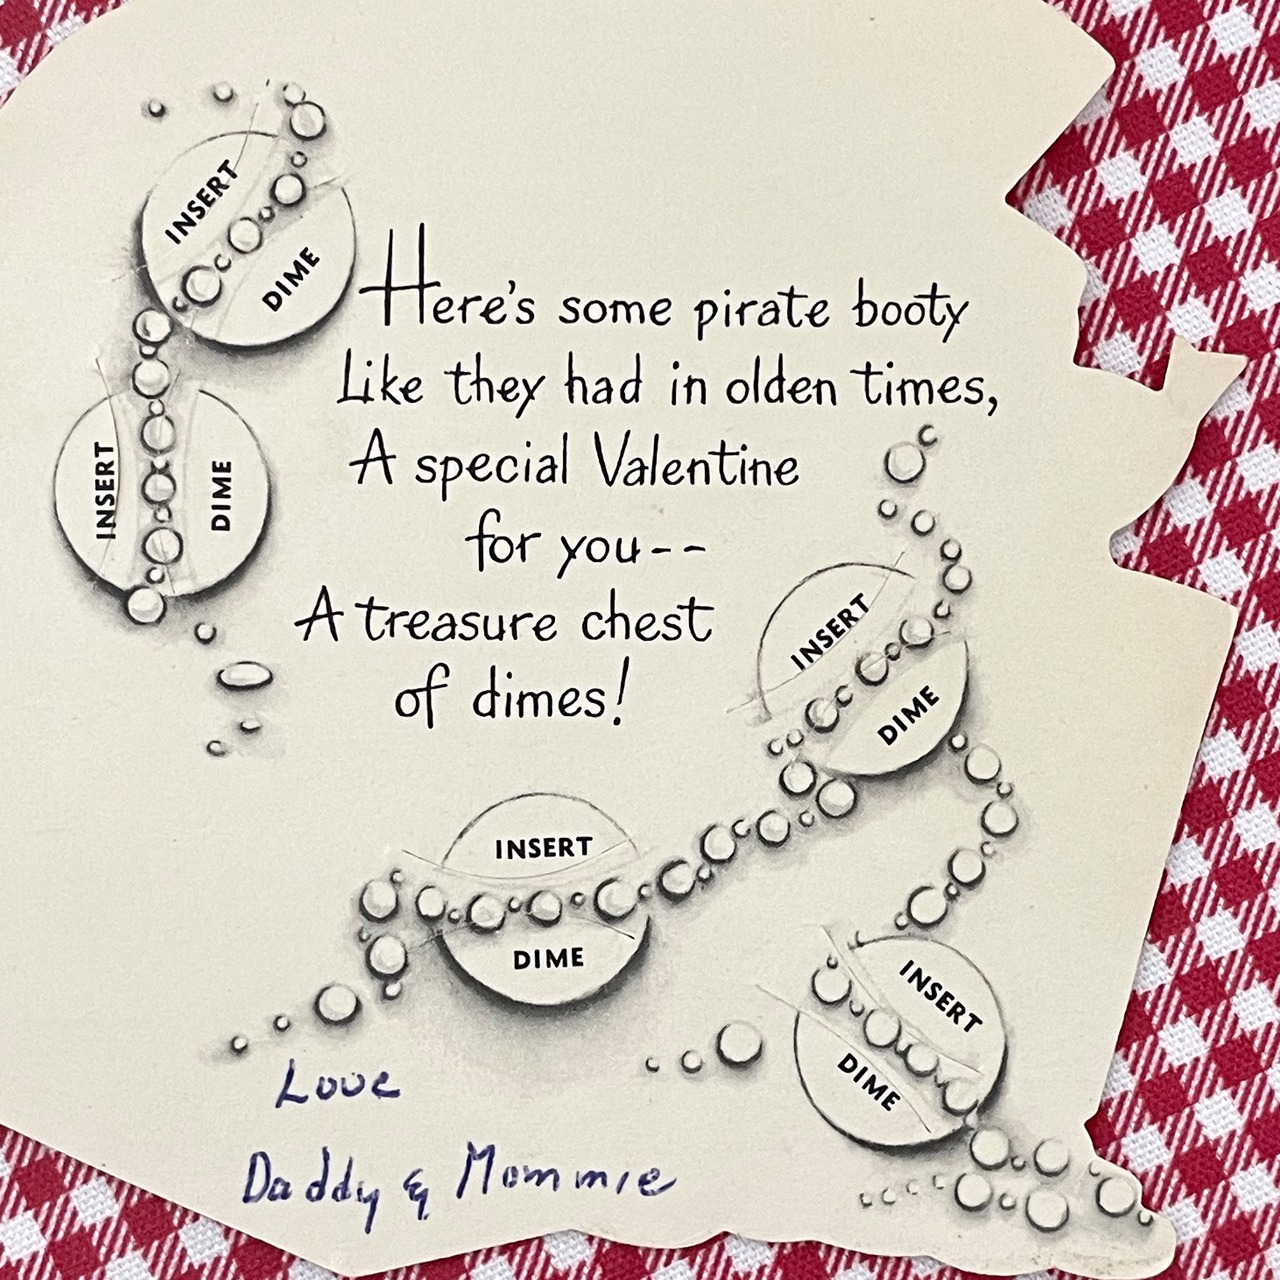 INSERT
DIME
Here's some pirate booty
Like they had in olden times,
A special Valentine
for you--
A treasure chest
of dimes!
INSERT
DIME
INSERT
DIME
INSERT
DIME
INSERT
DIME
Love
Daddy & Mommie